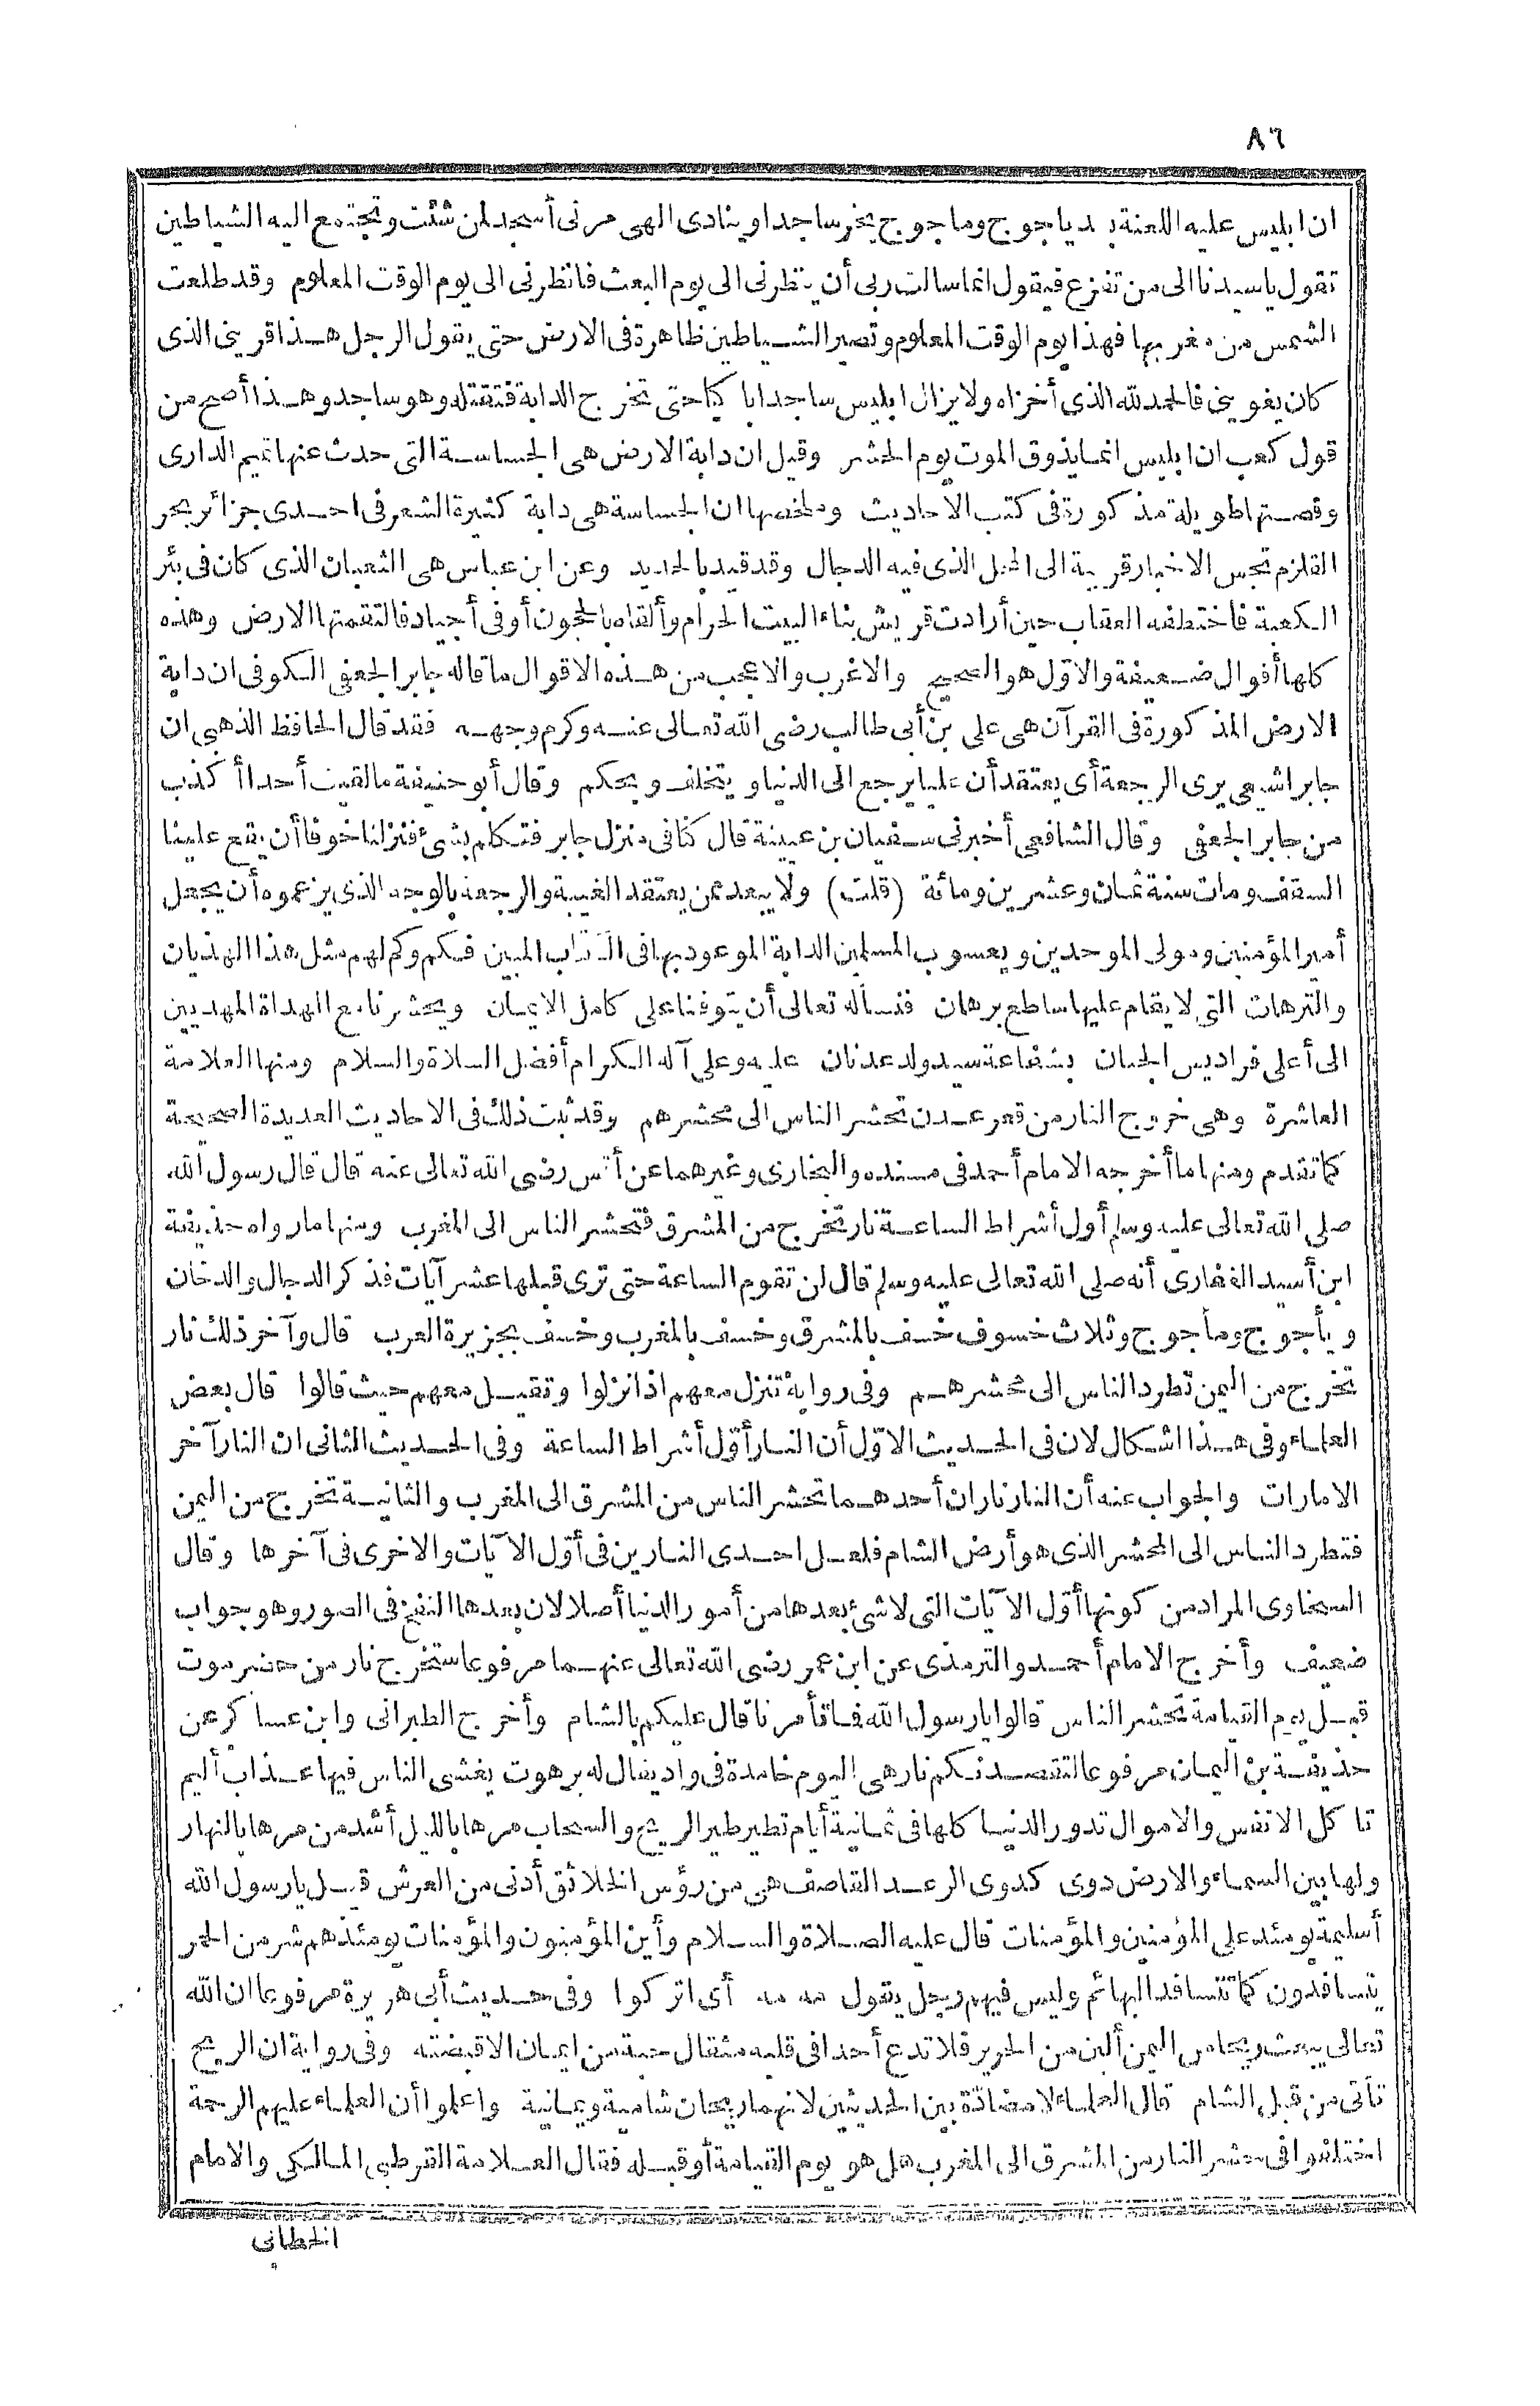 ٨٦
ان ابليس عليه اللعنة بعد ياجوج وماجوج يخر ساجدا وينادى الهى مرنى أسجد لمن شئت وتجتمع اليه الشياطين
تقول ياسيدنا الى من تفزع فيقول انما سالت ربى أن ينظرنى الى يوم البعث فانظرنى الى يوم الوقت المعلوم وقد طلعت
الشمس من مغربها فهذا يوم الوقت المعلوم وتصير الشياطين ظاهرة فى الارض حتى يقول الرجل هذا قرينى الذى
كان يغوينى فالحمد لله الذى أخزاه ولا يزال ابليس ساجدا باكيا حتى تخرج الدابة فتقتله وهو ساجد وهذا أصح من
قول كعب ان ابليس انما يذوق الموت يوم الحشر وقيل ان دابة الارض هى الجساسة التى حدث عنها تميم الدارى
وقصتها طويلة مذكورة فى كتب الأحاديث وملخصها ان الجساسة هى دابة كثيرة الشعر فى احدى جزائر بحر
القلزم تجس الاخبار قريبة الى المحل الذى فيه الدجال وقد قيد بالحديد وعن ابن عباس هى الثعبان الذى كان فى بئر
الكعبة فاختطفه العقاب حين أرادت قريش بناء البيت الحرام وألقاه بالحجون أو فى أجياد فالتقمتها الارض وهذه
كلها أقوال ضعيفة والاوّل هو الصحيح والاغرب والاعجب من هذه الاقوال ما قاله جابر الجعفى الكوفى ان دابة
الارض المذكورة فى القرآن هى على بن أبى طالب رضى الله تعالى عنه وكرم وجهه فقد قال الحافظ الذهبى ان
جابرا شيعى يرى الرجعة أى يعتقد أن عليا يرجع الى الدنيا ويتخلف ويحكم وقال أبو حنيفة ما لقيت أحدا أكذب
من جابر الجعفى وقال الشافعى أخبرنى سفيان بن عيينة قال كنا فى منزل جابر فتكلم بشئ فنزلنا خوفا أن يقع علينا
السقف ومات سنة ثمان وعشرين ومائة (قلت) ولا يبعد ممن يعتقد الغيبة والرجعة بالوجه الذى يزعموه أن يجعل
أمير المؤمنين ومولى الموحدين ويعسوب المسلمين الدابة الموعود بها فى الكتاب المبين فكم وكم لهم مثل هذا الهذيان
والترهات التى لا يقام عليها ساطع برهان فنسأله تعالى أن يتوفنا على كامل الايمان ويحشرنا مع الهداة المهديين
الى أعلى فراديس الجنان بشفاعة سيد ولد عدنان عليه وعلى آله الكرام أفضل السلاة والسلام ومنها العلامة
العاشرة وهى خروج النار من قعر عدن تحشر الناس الى محشرهم وقد ثبت ذلك فى الاحاديث العديدة الصحيحة
كما تقدم ومنها ما أخرجه الامام أحمد فى مسنده والبخارى وغيرهما عن أنس رضى الله تعالى عنه قال قال رسول الله
صلى الله تعالى عليه وسلم أول أشراط الساعة نار تخرج من المشرق فتحشر الناس الى المغرب ومنها ما رواه حذيفة
ابن أسيد الغفارى أنه صلى الله تعالى عليه وسلم قال لن تقوم الساعة حتى ترى قبلها عشر آيات فذكر الدجال والدخان
ويأجوج ومأجوج وثلاث خسوف خسف بالمشرق وخسف بالمغرب وخسف بجزيرة العرب قال وآخر ذلك نار
تخرج من اليمن تطرد الناس الى محشرهم وفى رواية تنزل معهم اذا نزلوا وتقيل معهم حيث قالوا قال بعض
العلماء وفى هذا اشكال لان فى الحديث الاوّل أن النار أوّل أشراط الساعة وفى الحديث الثانى ان النار آخر
الامارات والجواب عنه أن النار ناران أحدهما تحشر الناس من المشرق الى المغرب والثانية تخرج من اليمن
فتطرد الناس الى المحشر الذى هو أرض الشام فلعل احدى النارين فى أوّل الآيات والاخرى فى آخرها وقال
السخاوى المراد من كونها أوّل الآيات التى لا شئ بعدها من أمور الدنيا أصلا لان بعدها النفخ فى الصور وهو جواب
ضعيف وأخرج الامام أحمد والترمذى عن ابن عمر رضى الله تعالى عنهما مرفوعا ستخرج نار من حضرموت
قبل يوم القيامة تحشر الناس قالوا يارسول الله فما تأمرنا قال عليكم بالشام وأخرج الطبرانى وابن عساكر عن
حذيفة بن اليمان مرفوعا لتقصدنكم نار هى اليوم خامدة فى واد يقال له برهوت يغشى الناس فيها عذاب أليم
تاكل الانفس والاموال تدور الدنيا كلها فى ثمانية أيام تطير طير الريح والسحاب مرها بالليل أشد من مرها بالنهار
ولها بين السماء والارض دوى كدوى الرعد القاصف هى من رؤس الخلائق أدنى من العرش قيل يارسول الله
أسليمة يومئذ على المؤمنين والمؤمنات قال عليه الصلاة والسلام وأين المؤمنون والمؤمنات يومئذ هم شر من الحمر
يتسافدون كما تتسافد البهائم وليس فيهم رجل يقول مه مه أى اتركوا وفى حديث أبى هريرة مرفوعا ان الله
تعالى يبعث ريحا من اليمن ألين من الحرير فلا تدع أحدا فى قلبه مثقال حبة من ايمان الا قبضته وفى رواية ان الريح
تأتى من قبل الشام قال العلماء لا مضادّة بين الحديثين لانهما ريحان شامية ويمانية واعلموا أن العلماء عليهم الرحمة
اختلفوا فى حشر النار من المشرق الى المغرب هل هو يوم القيامة أو قبله فقال العلامة القرطبى المالكى والامام
الخطابى